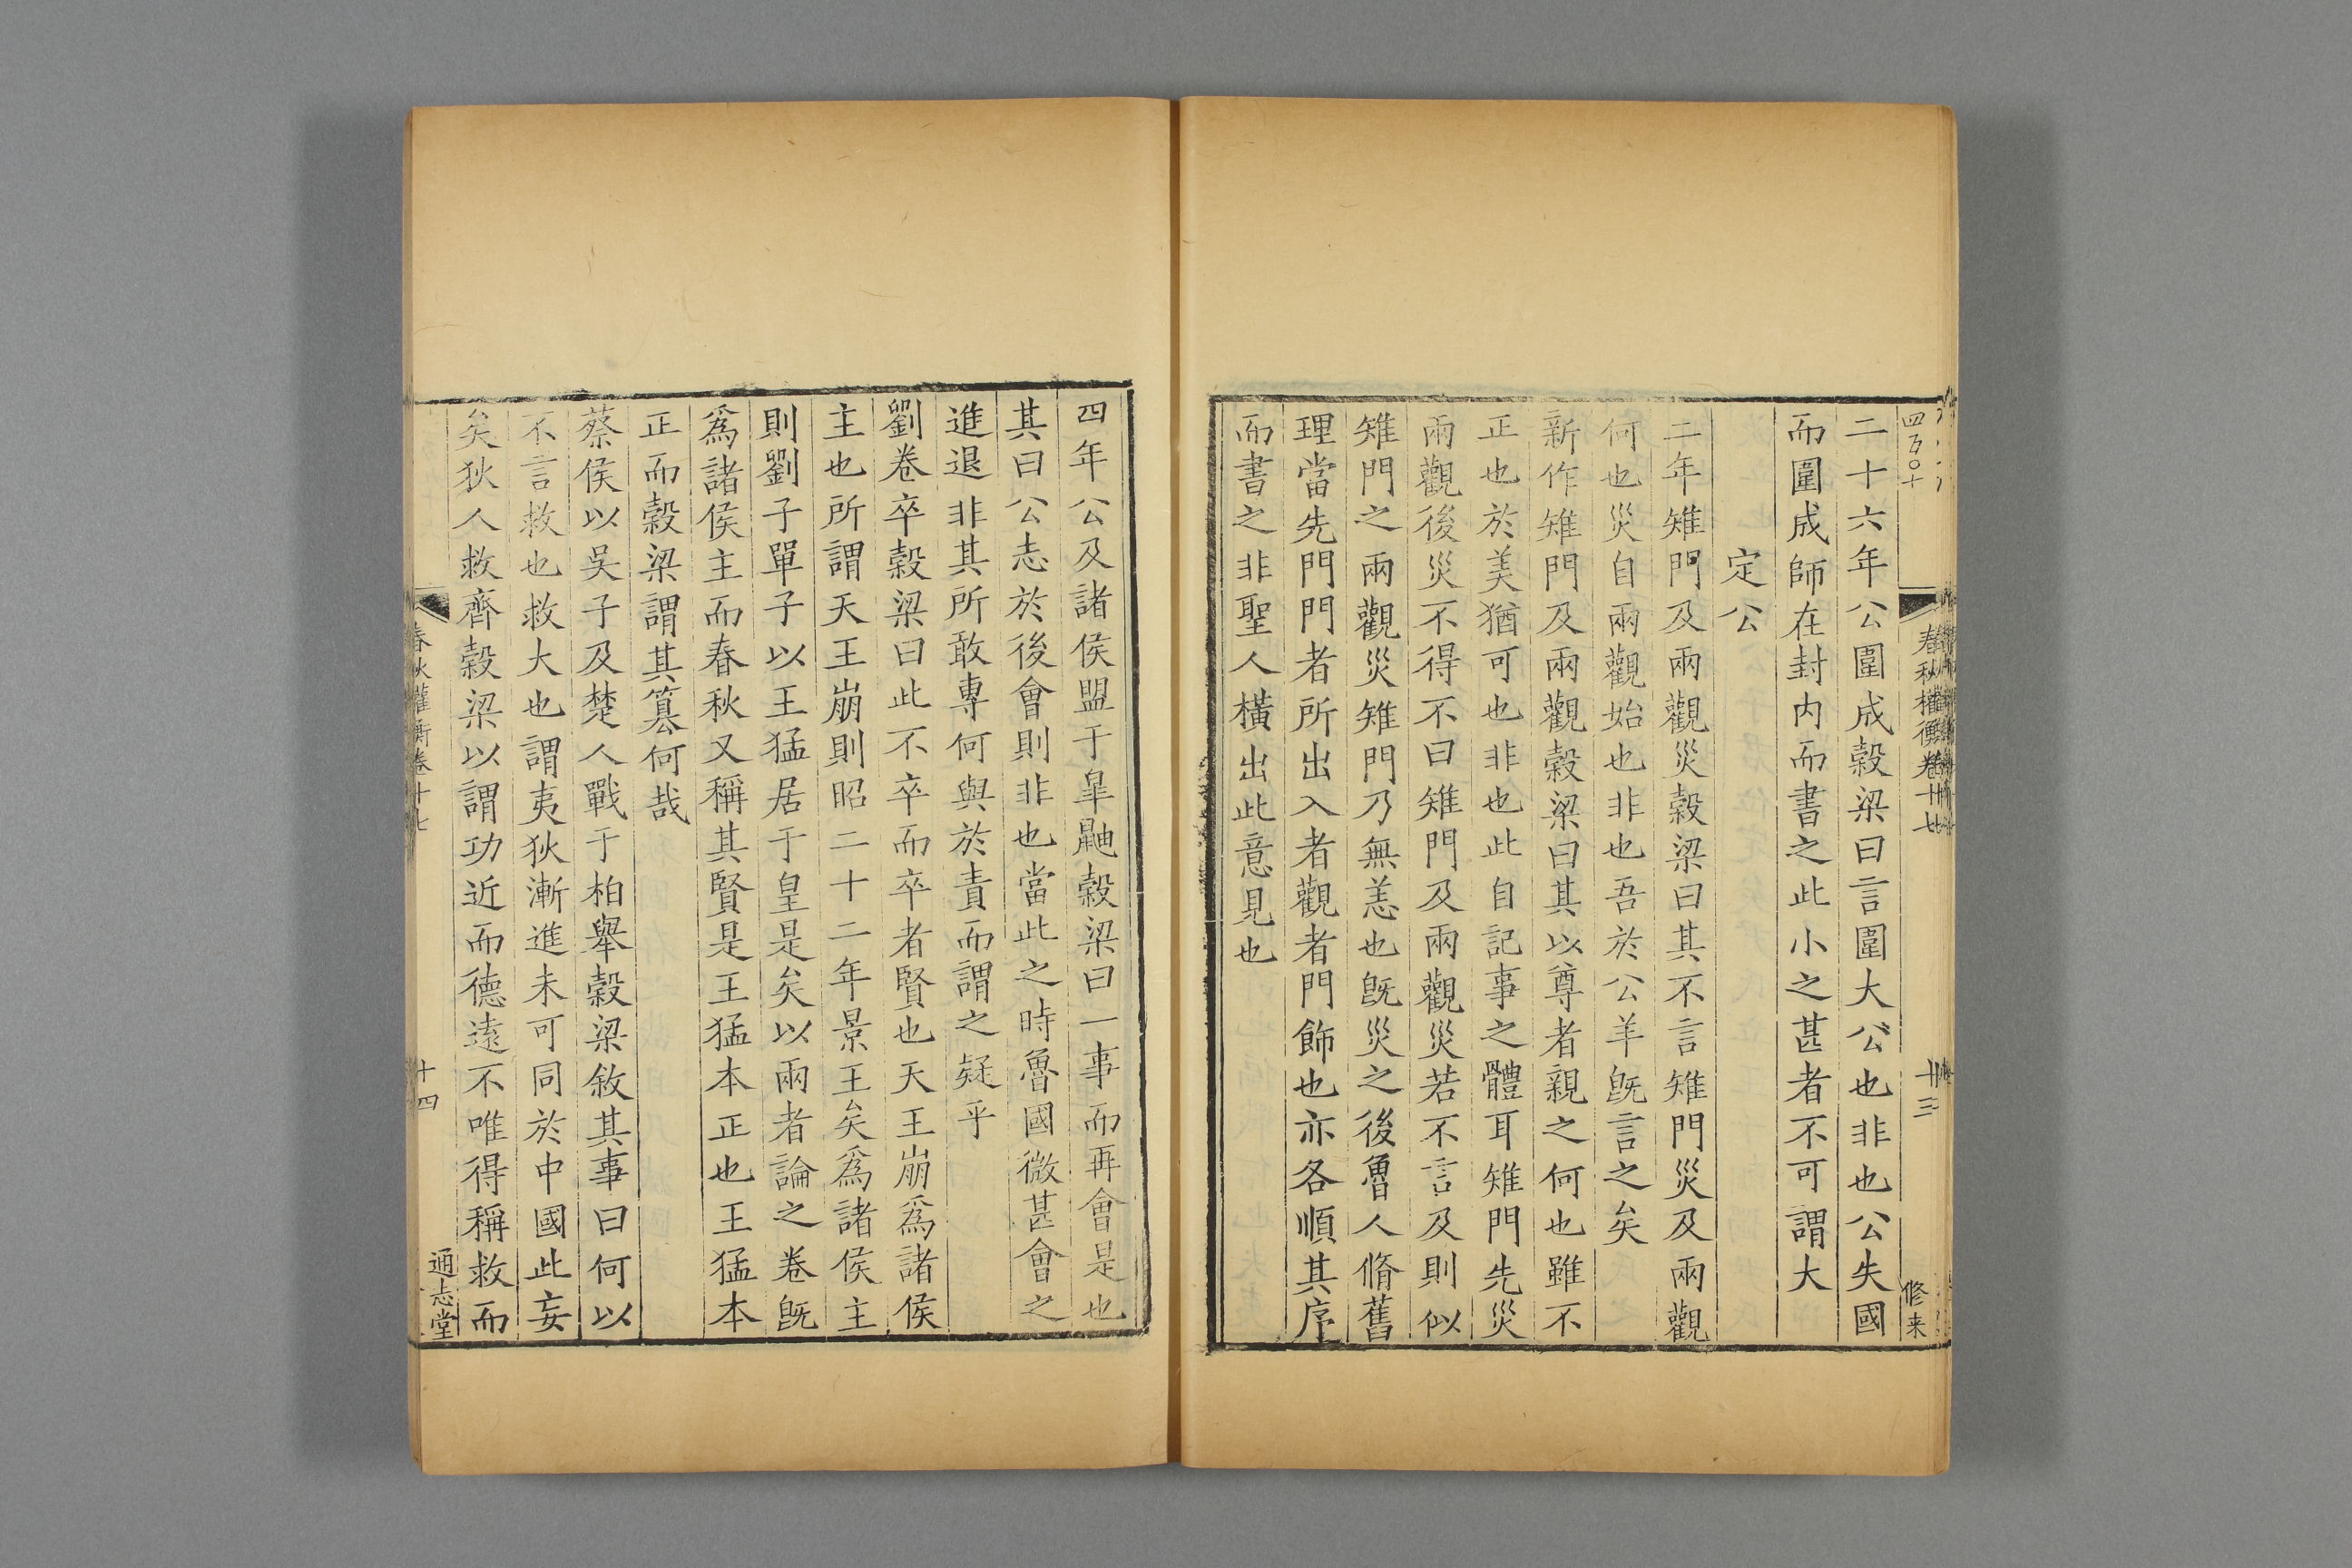 四百〇十
春秋權衡卷十七
十三
修来
二十六年公圍成穀梁曰言圍大公也非也公失國
而圍成師在封内而書之此小之甚者不可謂大
定公
二年雉門及兩觀災穀梁曰其不言雉門災及兩觀
何也災自兩觀始也非也吾於公羊旣言之矣
新作雉門及兩觀穀梁曰其以尊者親之何也雖不
正也於美猶可也非也此自記事之體耳雉門先災
兩觀後災不得不曰雉門及兩觀災若不言及則似
雉門之兩觀災雉門乃無恙也旣災之後魯人脩舊
理當先門門者所出入者觀者門飾也亦各順其序
而書之非聖人橫出此意見也
四年公及諸侯盟于臯鼬穀梁曰一事而再會是也
其曰公志於後會則非也當此之時魯國微甚會之
進退非其所敢專何與於責而謂之疑乎
劉卷卒穀梁曰此不卒而卒者賢也天王崩爲諸侯
主也所謂天王崩則昭二十二年景王矣爲諸侯主
則劉子單子以王猛居于皇是矣以兩者論之卷旣
爲諸侯主而春秋又稱其賢是王猛本正也王猛本
正而穀梁謂其篡何哉
蔡侯以吳子及楚人戰于柏舉穀梁敘其事曰何以
不言救也救大也謂夷狄漸進未可同於中國此妄
矣狄人救齊穀梁以謂功近而德遠不唯得稱救而
春秋權衡卷十七
十四
通志堂